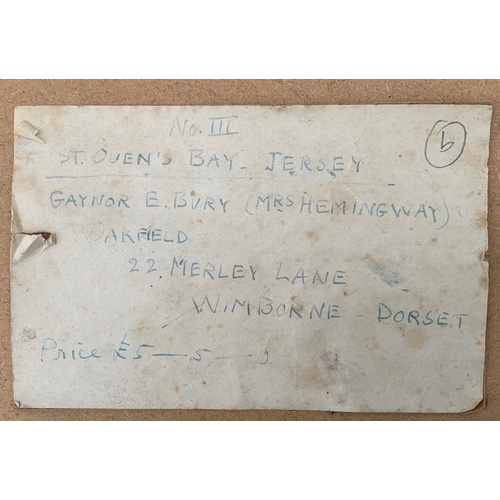 No. III
b
ST. OUEN'S BAY - JERSEY
GAYNOR E. BURY (MRS HEMINGWAY)
OARFIELD
22 MERLEY LANE
WIMBORNE - DORSET
Price £5 — 5 — 0